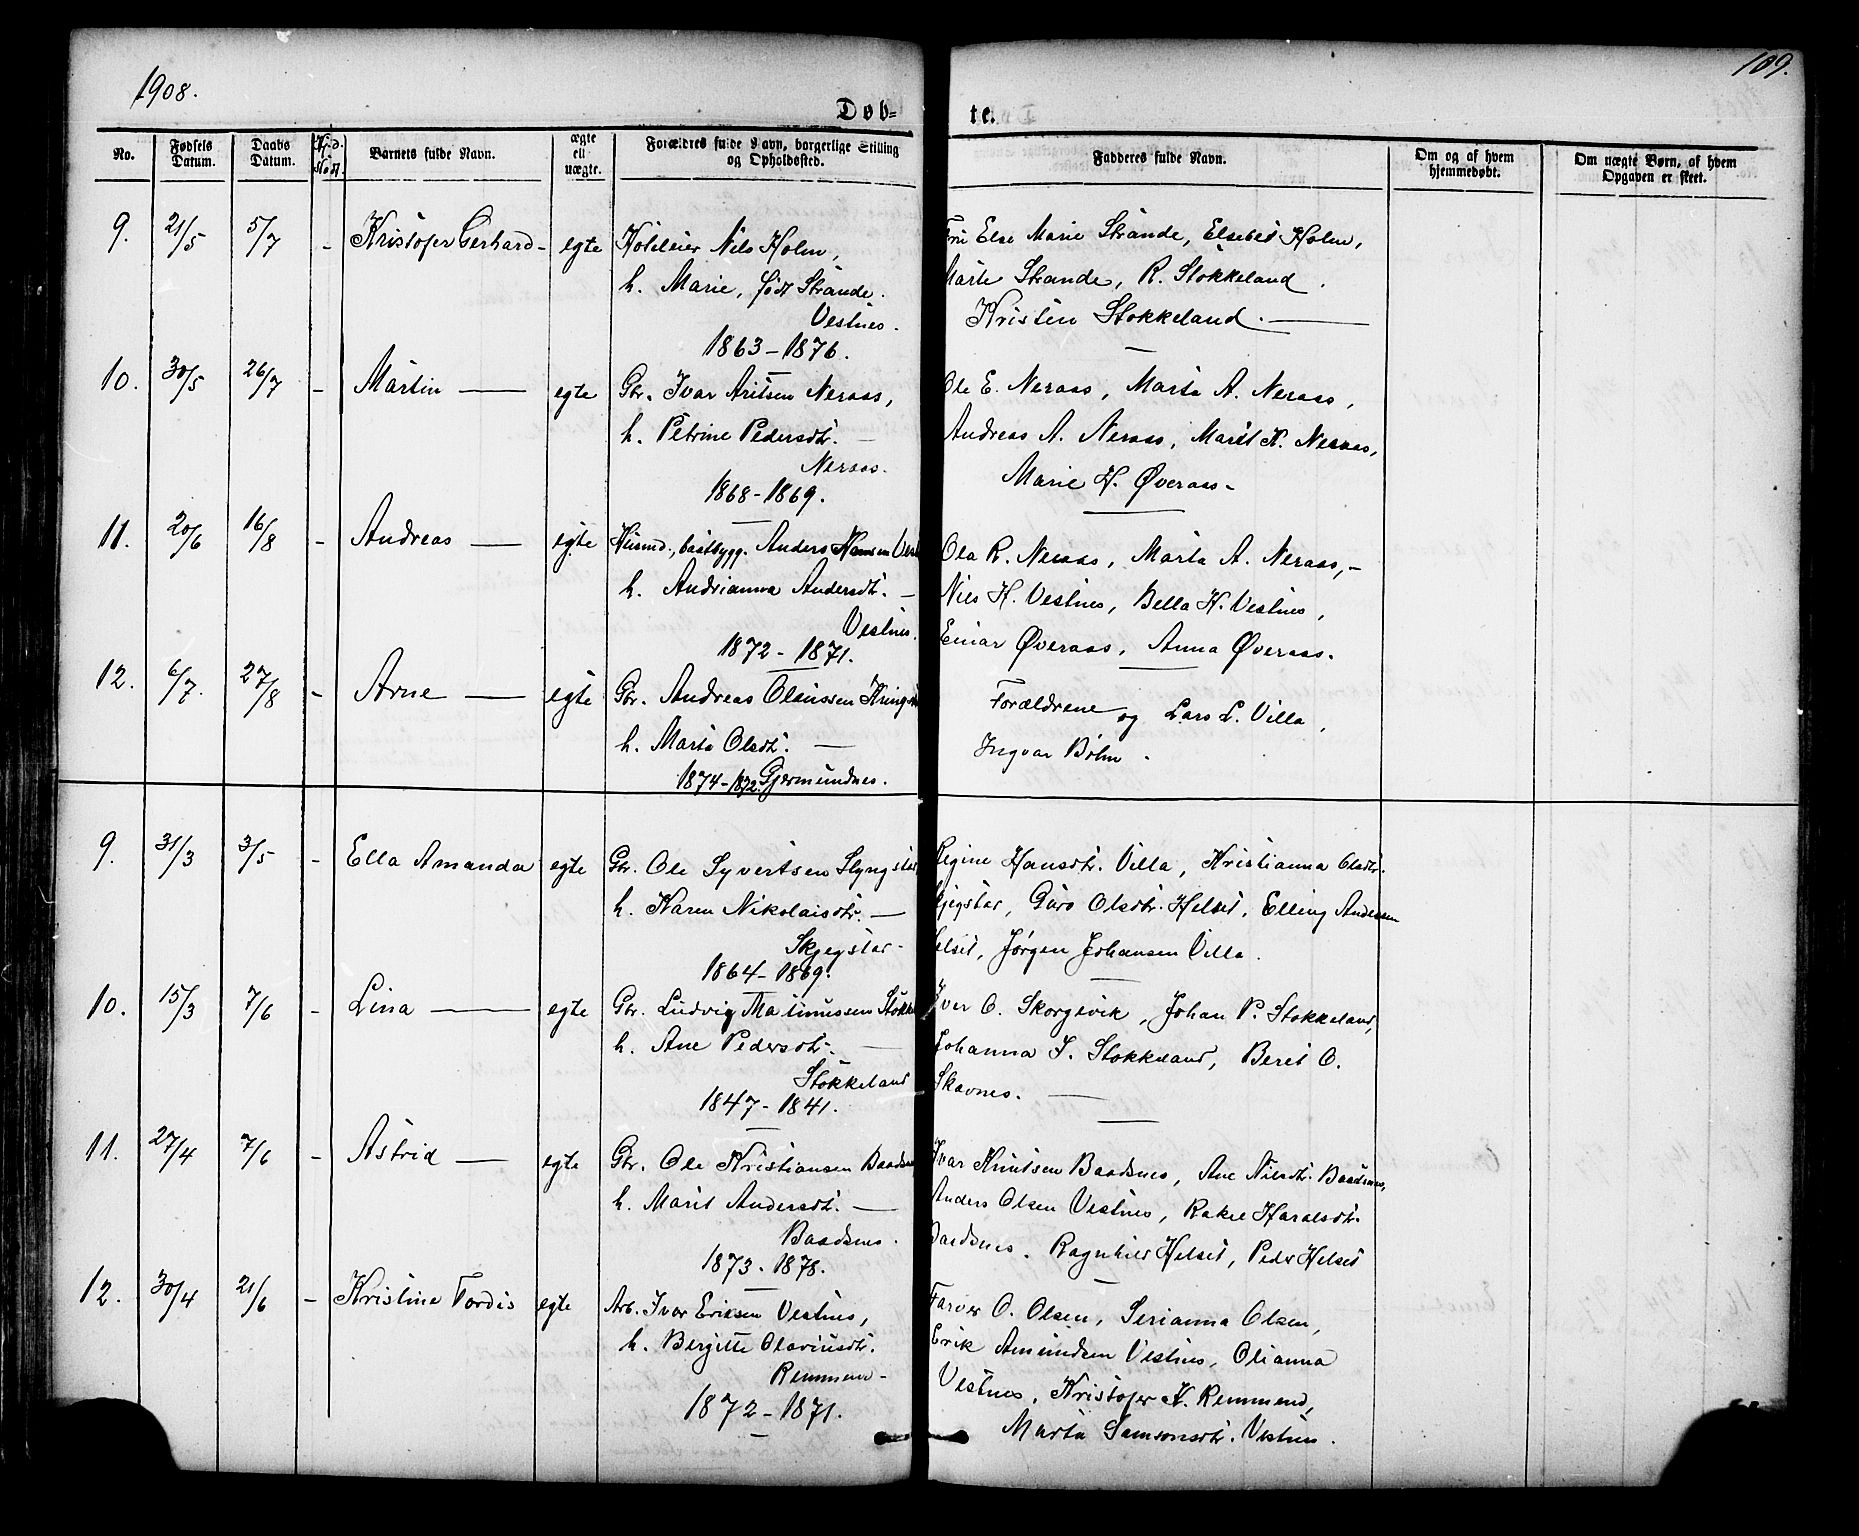 1908.
109.
Døb-
te.
No.
Fødsels Datum.
Daabs Datum.
Barnets fulde Navn.
ægte ell uægte.
Forældres fulde Navn, borgerlige Stilling og Opholdssted.
Fadderes fulde Navn.
Om og af hvem hjemmedøbt.
Om uægte Børn, af hvem Opgaven er skeet.
9. 21/5 5/7 - Kristofer Gerhard - egte Hoteleier Nils Holm,
h. Marie, født Strande.
Vestnes.
1863-1876.
Fru Else Marie Strande, Elsebet Holm,
Marte Strande, R. Stokkeland.
Kristen Stokkeland.
10. 30/5 26/7 - Martin egte Gbr. Ivar Aritsen Neraas,
h. Petrine Pedersdtr.
Neraas.
1868-1869.
Ole E. Neraas, Marta A. Neraas,
Andreas A. Neraas, Marit K. Neraas,
Marie H. Øveraas
11. 20/6 16/8 - Andreas egte Husmd., baatbygg. Anders Hansen
h. Andrianna Andersdtr.
Vestnes.
1872-1871.
Ola R. Neraas, Marta A. Neraas,
Nils H. Vestnes, Bella H. Vestnes,
Einar Øveraas, Anna Øveraas.
12. 6/7. 27/8 - Arne egte Gbr. Andreas Olaussen
h. Marta Olsdtr.
1874-1872. Gjermundnes.
Forældrene og Lars L. Villa,
Ingvar Bolm.
9. 31/3 3/5 - Ella Amanda egte Gbr. Ole Syvertsen
h. Karen Nikolaisdtr.
Skjegstar
1864-1869.
Regine Hansdtr. Villa, Kristianna Olsdtr.
Skjegstar, Guro Olsdtr. Helset, Elling Andersen
Helset, Jørgen Johansen Villa.
10. 15/3 7/6 - Lina egte Gbr. Ludvig Matinussen
h. Ane Pedersdtr.
Stokkeland
1847-1841.
Iver O. Skorgevik, Johan P. Stokkeland,
Johanna J. Stokkeland, Beret O.
Skavnes.
11. 27/4 7/6 - Astrid egte Gbr. Ole Kristiansen Baadsnes
h. Marit Andersdtr.
Baadsnes.
1873-1878.
Ivar Knutsen Baadsnes, Ane Nilsdtr. Baadsnes,
Anders Olsen Vestnes, Rakel Haraldsdtr.
Baadsnes. Ragnhild Helset, Peder Helset
12. 30/4 21/6 - Kristine Tordis egte Arb. Ivar Eriksen Vestnes,
h. Bergitte Olaviusdtr.
Remmem
1872-1871.
Farver O. Olsen, Serianna Olsen,
Erik Amundsen Vestnes, Olianna
Vestnes, Kristofer K. Remmend,
Marta Samsonsdtr. Vestnes.